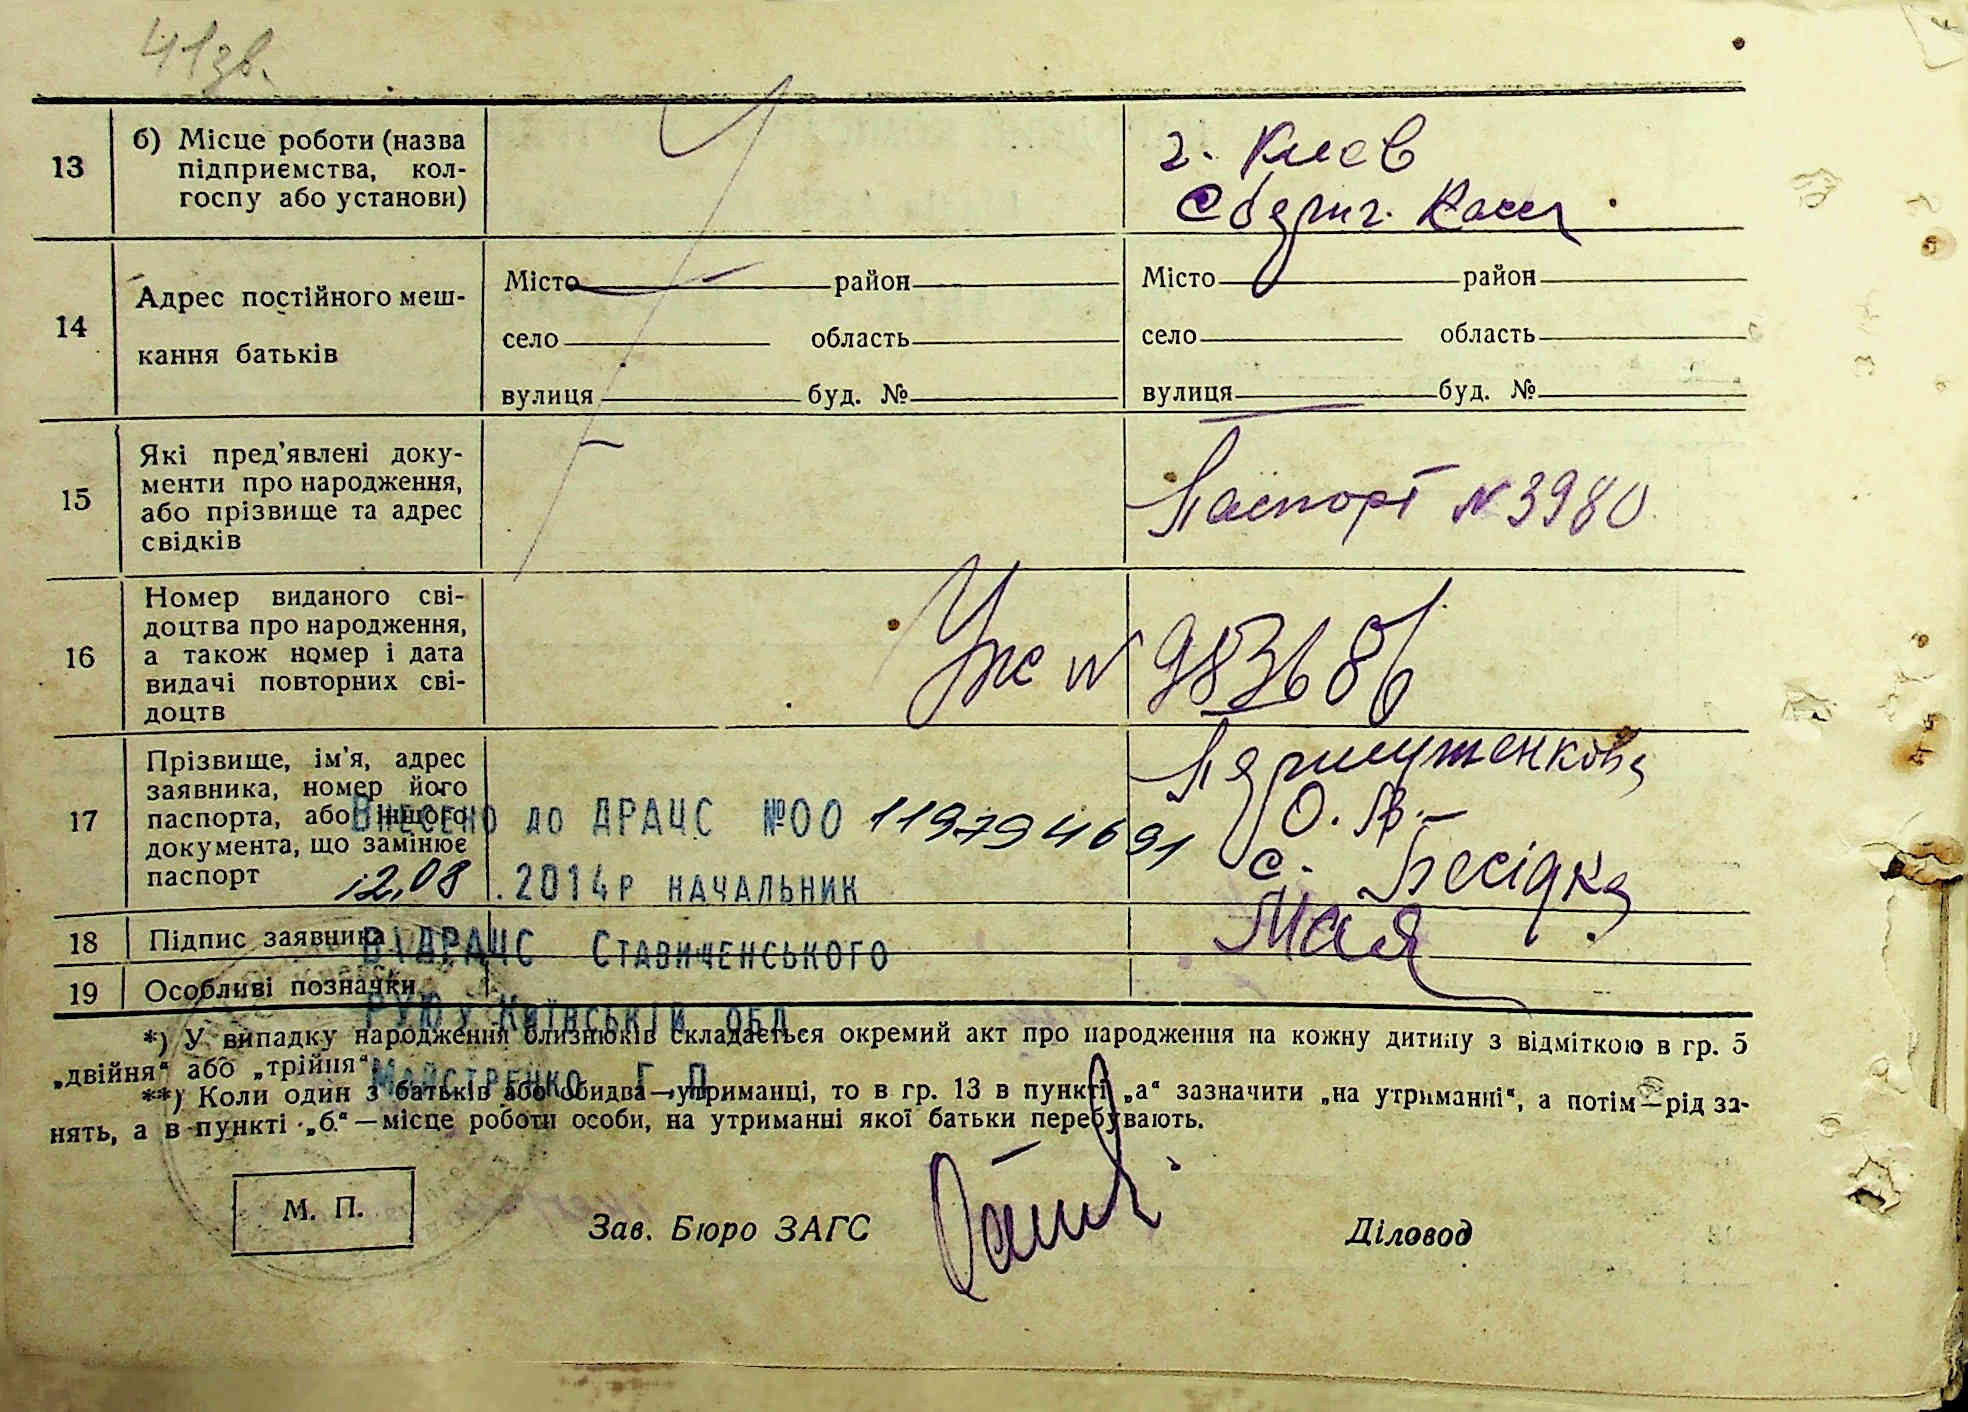 41 зв.
13 б) Місце роботи (назва
підприємства, кол-
госпу або установи)
г. Киев
Сбериг. Касса
14 Адрес постійного меш-
кання батьків
Місто район Місто район
село область село область
вулиця буд. № вулиця буд. №
15 Які пред'явлені доку-
менти про народження,
або прізвище та адрес
свідків
Паспорт № 3980
16 Номер виданого сві-
доцтва про народження,
а також номер і дата
видачі повторних сві-
доцтв
№
17 Прізвище, ім'я, адрес
заявника, номер його
паспорта, або іншого
документа, що замінює
паспорт
О. В.
с. Бесідка
Внесено до ДРАЦС №00 119794691
12.08.2014р начальник
ВДРАЦС Ставиченського
РУЮ у Київській обл.
Майстренко Г П
18 Підпис заявника
19 Особливі позначки
*) У випадку народження близнюків складається окремий акт про народження на кожну дитину з відміткою в гр. 5
„двійня" або „трійня"
**) Коли один з батьків або обидва—утриманці, то в гр. 13 в пункті „а" зазначити „на утриманні", а потім—рід за-
нять, а в пункті „б"—місце роботи особи, на утриманні якої батьки перебувають.
М. П.
Зав. Бюро ЗАГС Діловод